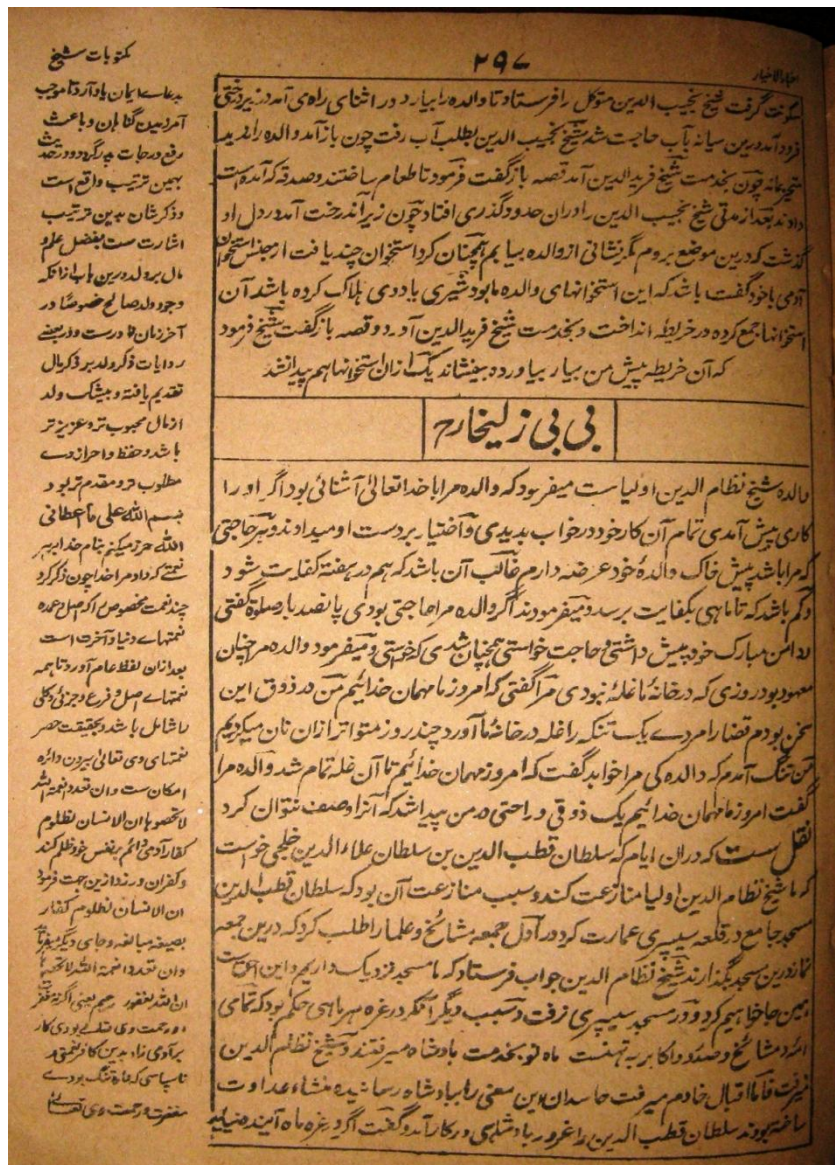 اخبار الاخیار
۲۹۷
مکتوبات شیخ
سکونت گرفت شیخ نجیب الدین متوکل را فرستاد تا والده را بیارد در اثنای راه می آمد در زیر درختی
فرود آمد درین میانه بآب حاجت شد شیخ نجیب الدین بطلب آب رفت چون باز آمد والده را ندید
متحیر بماند چون بخدمت شیخ فرید الدین آمد قصه باز گفت فرمود تا طعام بساختند و صدقه که آمده است
دادند بعد از مدتی شیخ نجیب الدین را دران حدود گذری افتاد چون زیر آن درخت آمد در دل او
گذشت که درین موضع بروم مگر نشانی از والده بیابم همچنان کرد استخوان چند یافت از جنس استخوان
آدمی با خود گفت باشد که این استخوانهای والده ما بود شیری یا ددی هلاک کرده باشد آن
استخوانها جمع کرده در خریطه انداخت و بخدمت شیخ فرید الدین آورد و قصه باز گفت شیخ فرمود
که آن خریطه پیش من بیار بیاورد و بیفشاند یک ازان استخوانها هم پیدا نشد
بی بی زلیخا رح
والده شیخ نظام الدین اولیا ست میفرمود که والده مرا با خدا تعالی آشنائی بود اگر او را
کاری پیش آمدی تمام آن کار خود در خواب بدیدی و اختیار بدست او میدادند و هر حاجتی
که مرا باشد پیش خاک والدهٔ خود عرضه دارم غالب آن باشد که هم در هفته کفایت شود
و کم باشد که تا ماهی بکفایت برسد و میفرمودند اگر والده مرا حاجتی بودی پانصد بار صلوة گفتی
و دامن مبارک خود پیش داشتی و حاجت خواستی همچنان شدی که خواستی و میفرمود والده مرا چنان
معهود بود روزی که در خانهٔ ما غله نبودی مرا گفتی که امروز ما مهمان خدائیم من در ذوق این
سخن بودم قضا را مردے یک تنکه را غله در خانهٔ ما آورد چند روز متواتر ازان نان میکردیم
من تنگ آمدم که والده کی مرا خواهد گفت که امروز مهمان خدائیم تا آن غله تمام شد والده مرا
گفت امروز ما مهمان خدائیم یک ذوقی و راحتی در من پیدا شد که آنرا وصف نتوان کرد
نقل ست که دران ایام که سلطان قطب الدین بن سلطان علاء الدین خلجی خواست
که با شیخ نظام الدین اولیا منازعت کند و سبب منازعت آن بود که سلطان قطب الدین
مسجد جامع در قلعه سیری عمارت کرد در اول جمعه مشائخ و علما را طلب کرد که درین جمعه
نماز درین مسجد بگذارند شیخ نظام الدین جواب فرستاد که ما مسجد نزدیک داریم و این احق است
همین جا خواهیم کرد و در مسجد سیری نرفت و سبب دیگر آنکه در غره هر ماهی حکم بود که تمامی
ائمه و مشائخ و صدور و اکابر به تهنیت ماه نو بخدمت بادشاه میرفتند و شیخ نظام الدین
نمیرفت فاما اقبال خادم میرفت حاسدان این معنی را ببادشاه رسانیده منشاء عداوت
ساخته بودند سلطان قطب الدین را غرور بادشاهی در کار آمد و گفت اگر در غره ماه آینده نیاید
بدعاے ایمان یاد آرد تا موجب
آمرزیدن گناهان و باعث
رفع درجات گردد و در حدیث
بهمین ترتیب واقع است
و ذکر شان بدین ترتیب
اشارت ست بفضل علم و
مال بر ولد درین باب زانکه
وجود ولد صالح خصوصا در
آخر زمان نادرست و در بعضے
روایات ذکر ولد بر ذکر مال
تقدیم یافته و بیشک ولد
از مال محبوب تر و عزیز تر
باشد و حفظ و احراز وے
مطلوب تر و مقدم تر بود
بسم الله علی ما اعطانی
الله حرز میکنم بنام خدا بر هر
نعمتے که داد مرا خدا چون ذکر کرد
چند نعمت مخصوص که اصل عمده
نعمتهاے دنیا و آخرت است
بعد ازان لفظ عام آورد تا همه
نعمتهاے اصل و فرع و جزئی و کلی
را شامل باشد و بحقیقت حصر
نعمتهای وی تعالی بیرون دائره
امکان ست وان تعدوا نعمة الله
لا تحصوها ان الانسان لظلوم
کفار آدمی دائم بر نفس خود ظلم کند
و کفران ورزد ازین جهت فرمود
ان الانسان لظلوم کفار
بصیغه مبالغه و جای دیگر میفرماید
وان تعدوا نعمة الله لا تحصوها
ان الله لغفور رحیم یعنی اگر نه مغفرت
و رحمت وی تعالے بودی کار
بر آدمی زاد بدین کافر نعمتی و
ناسپاسی که دارد تنگ بودے
مغفرت و رحمت وی تعالے